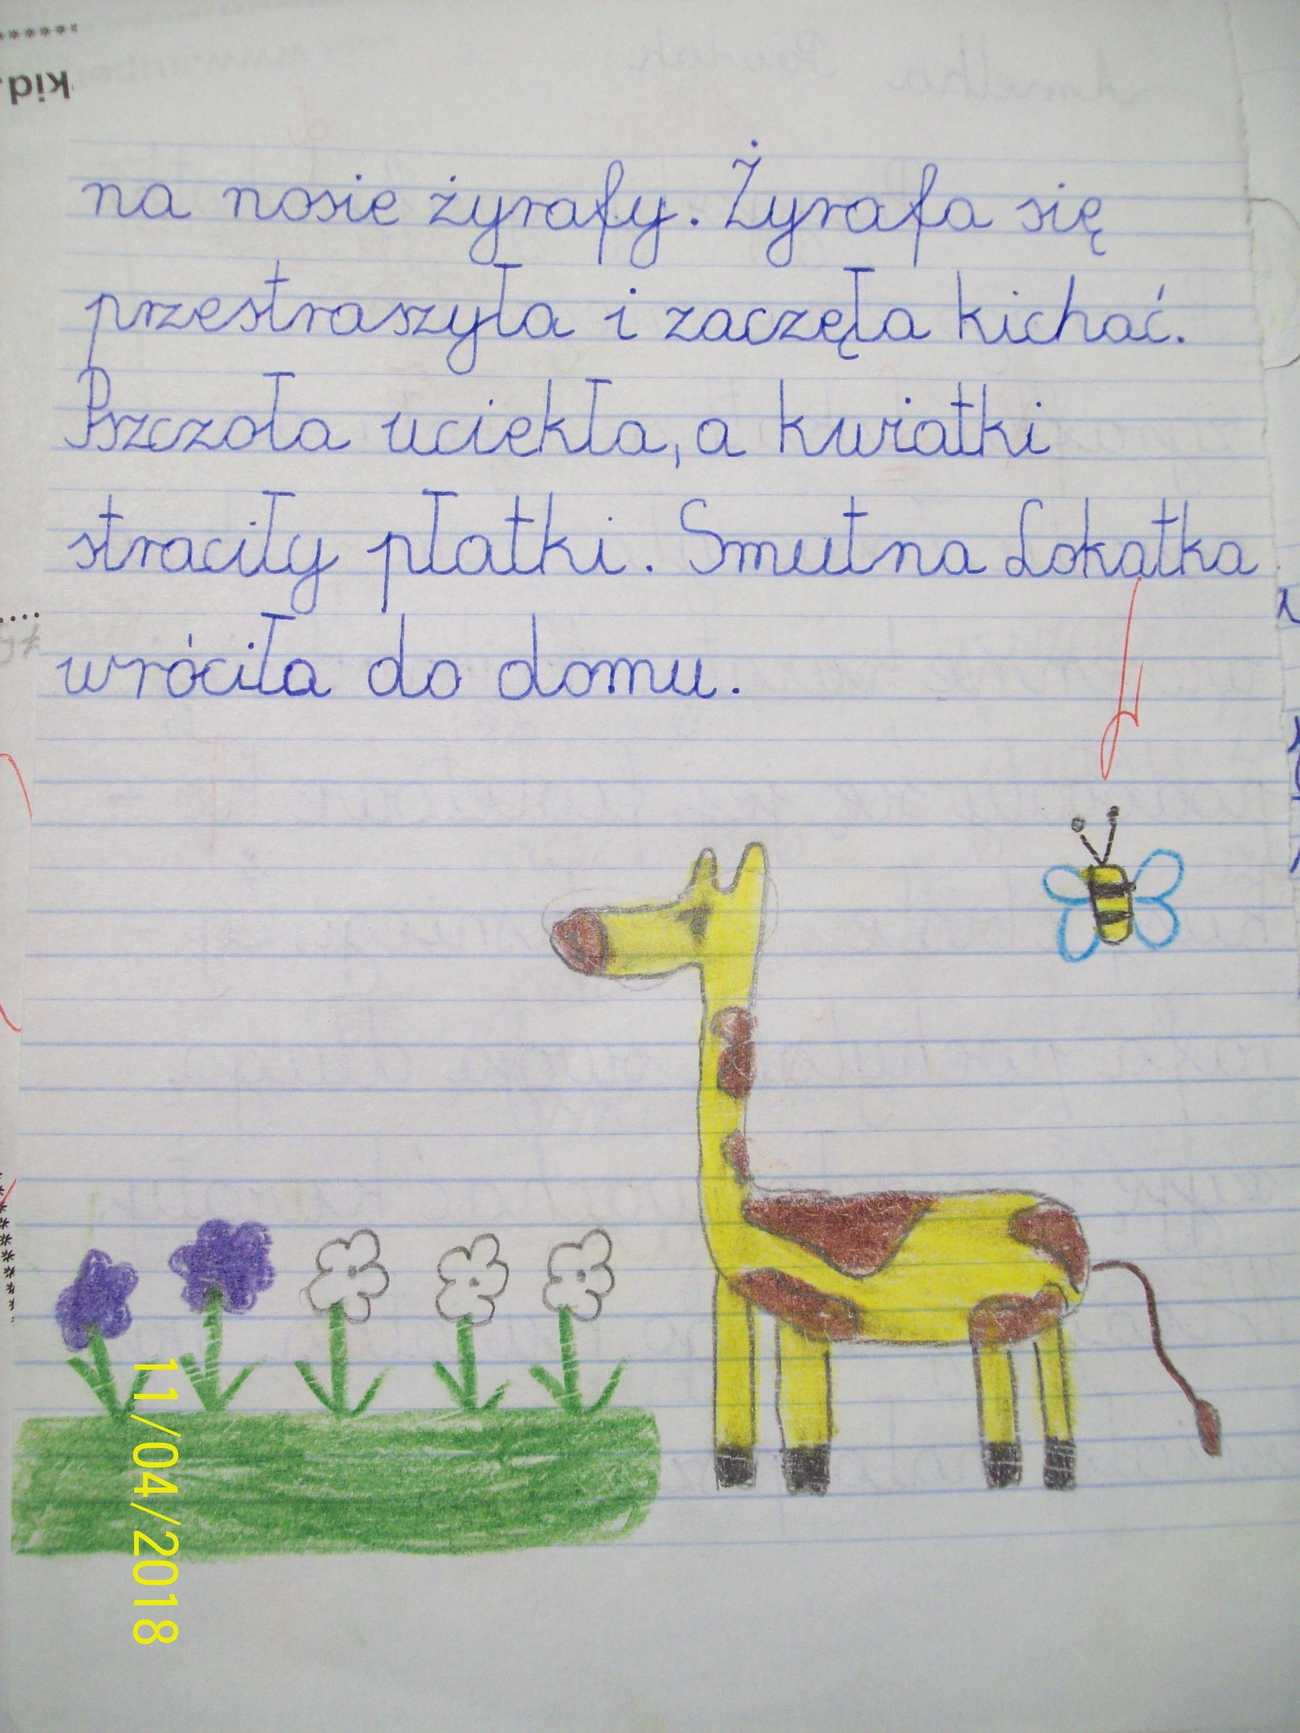 kid.
na nosie żyrafy. Żyrafa się
przestraszyła i zaczęła kichać.
Pszczoła uciekła, a kwiatki
straciły płatki. Smutna Lokatka
wróciła do domu.
11/04/2018